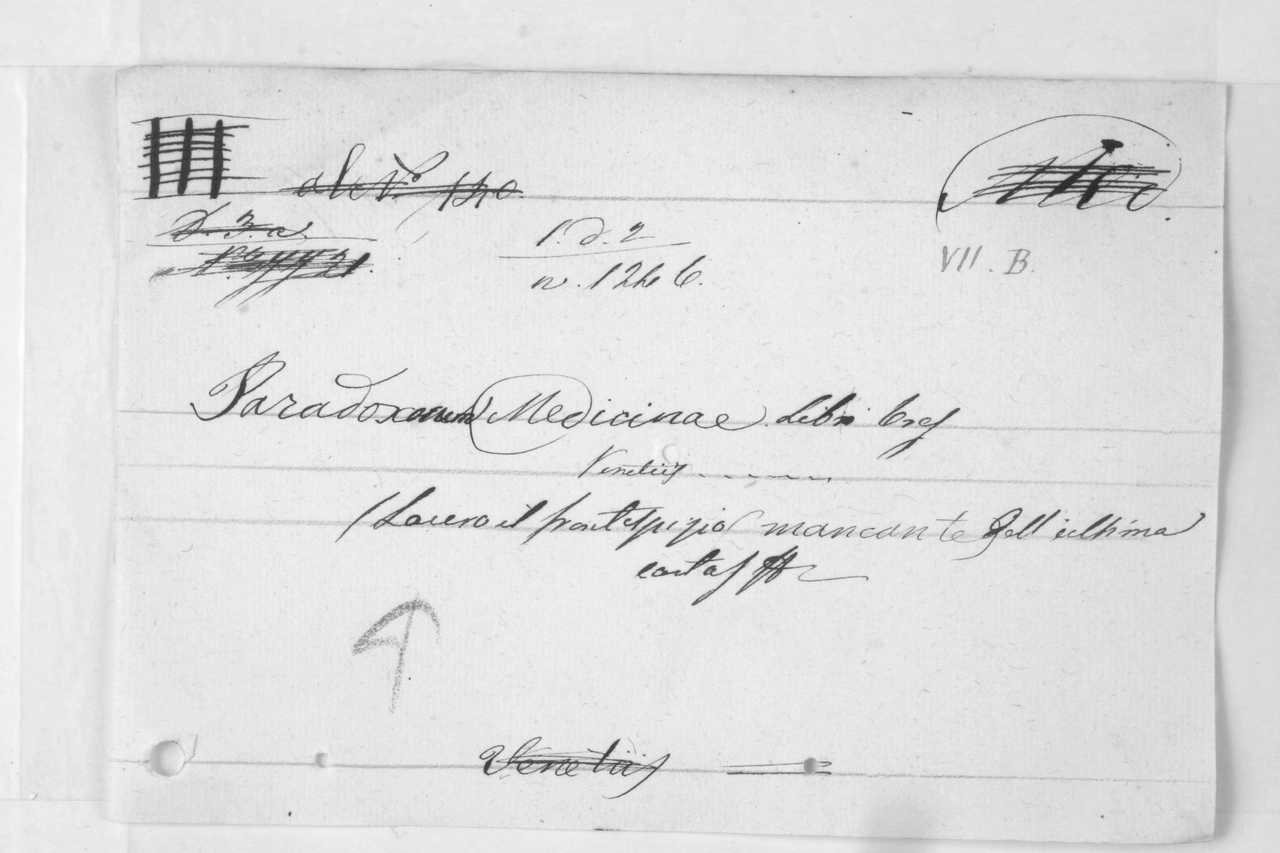 D. 3. a
1. d. 2
n. 1246.
VII. B.
Paradoxorum Medicinae Libri tres
Venetiis
(Lacero il frontespizio mancante dell'ultima
carta)
Venetiis